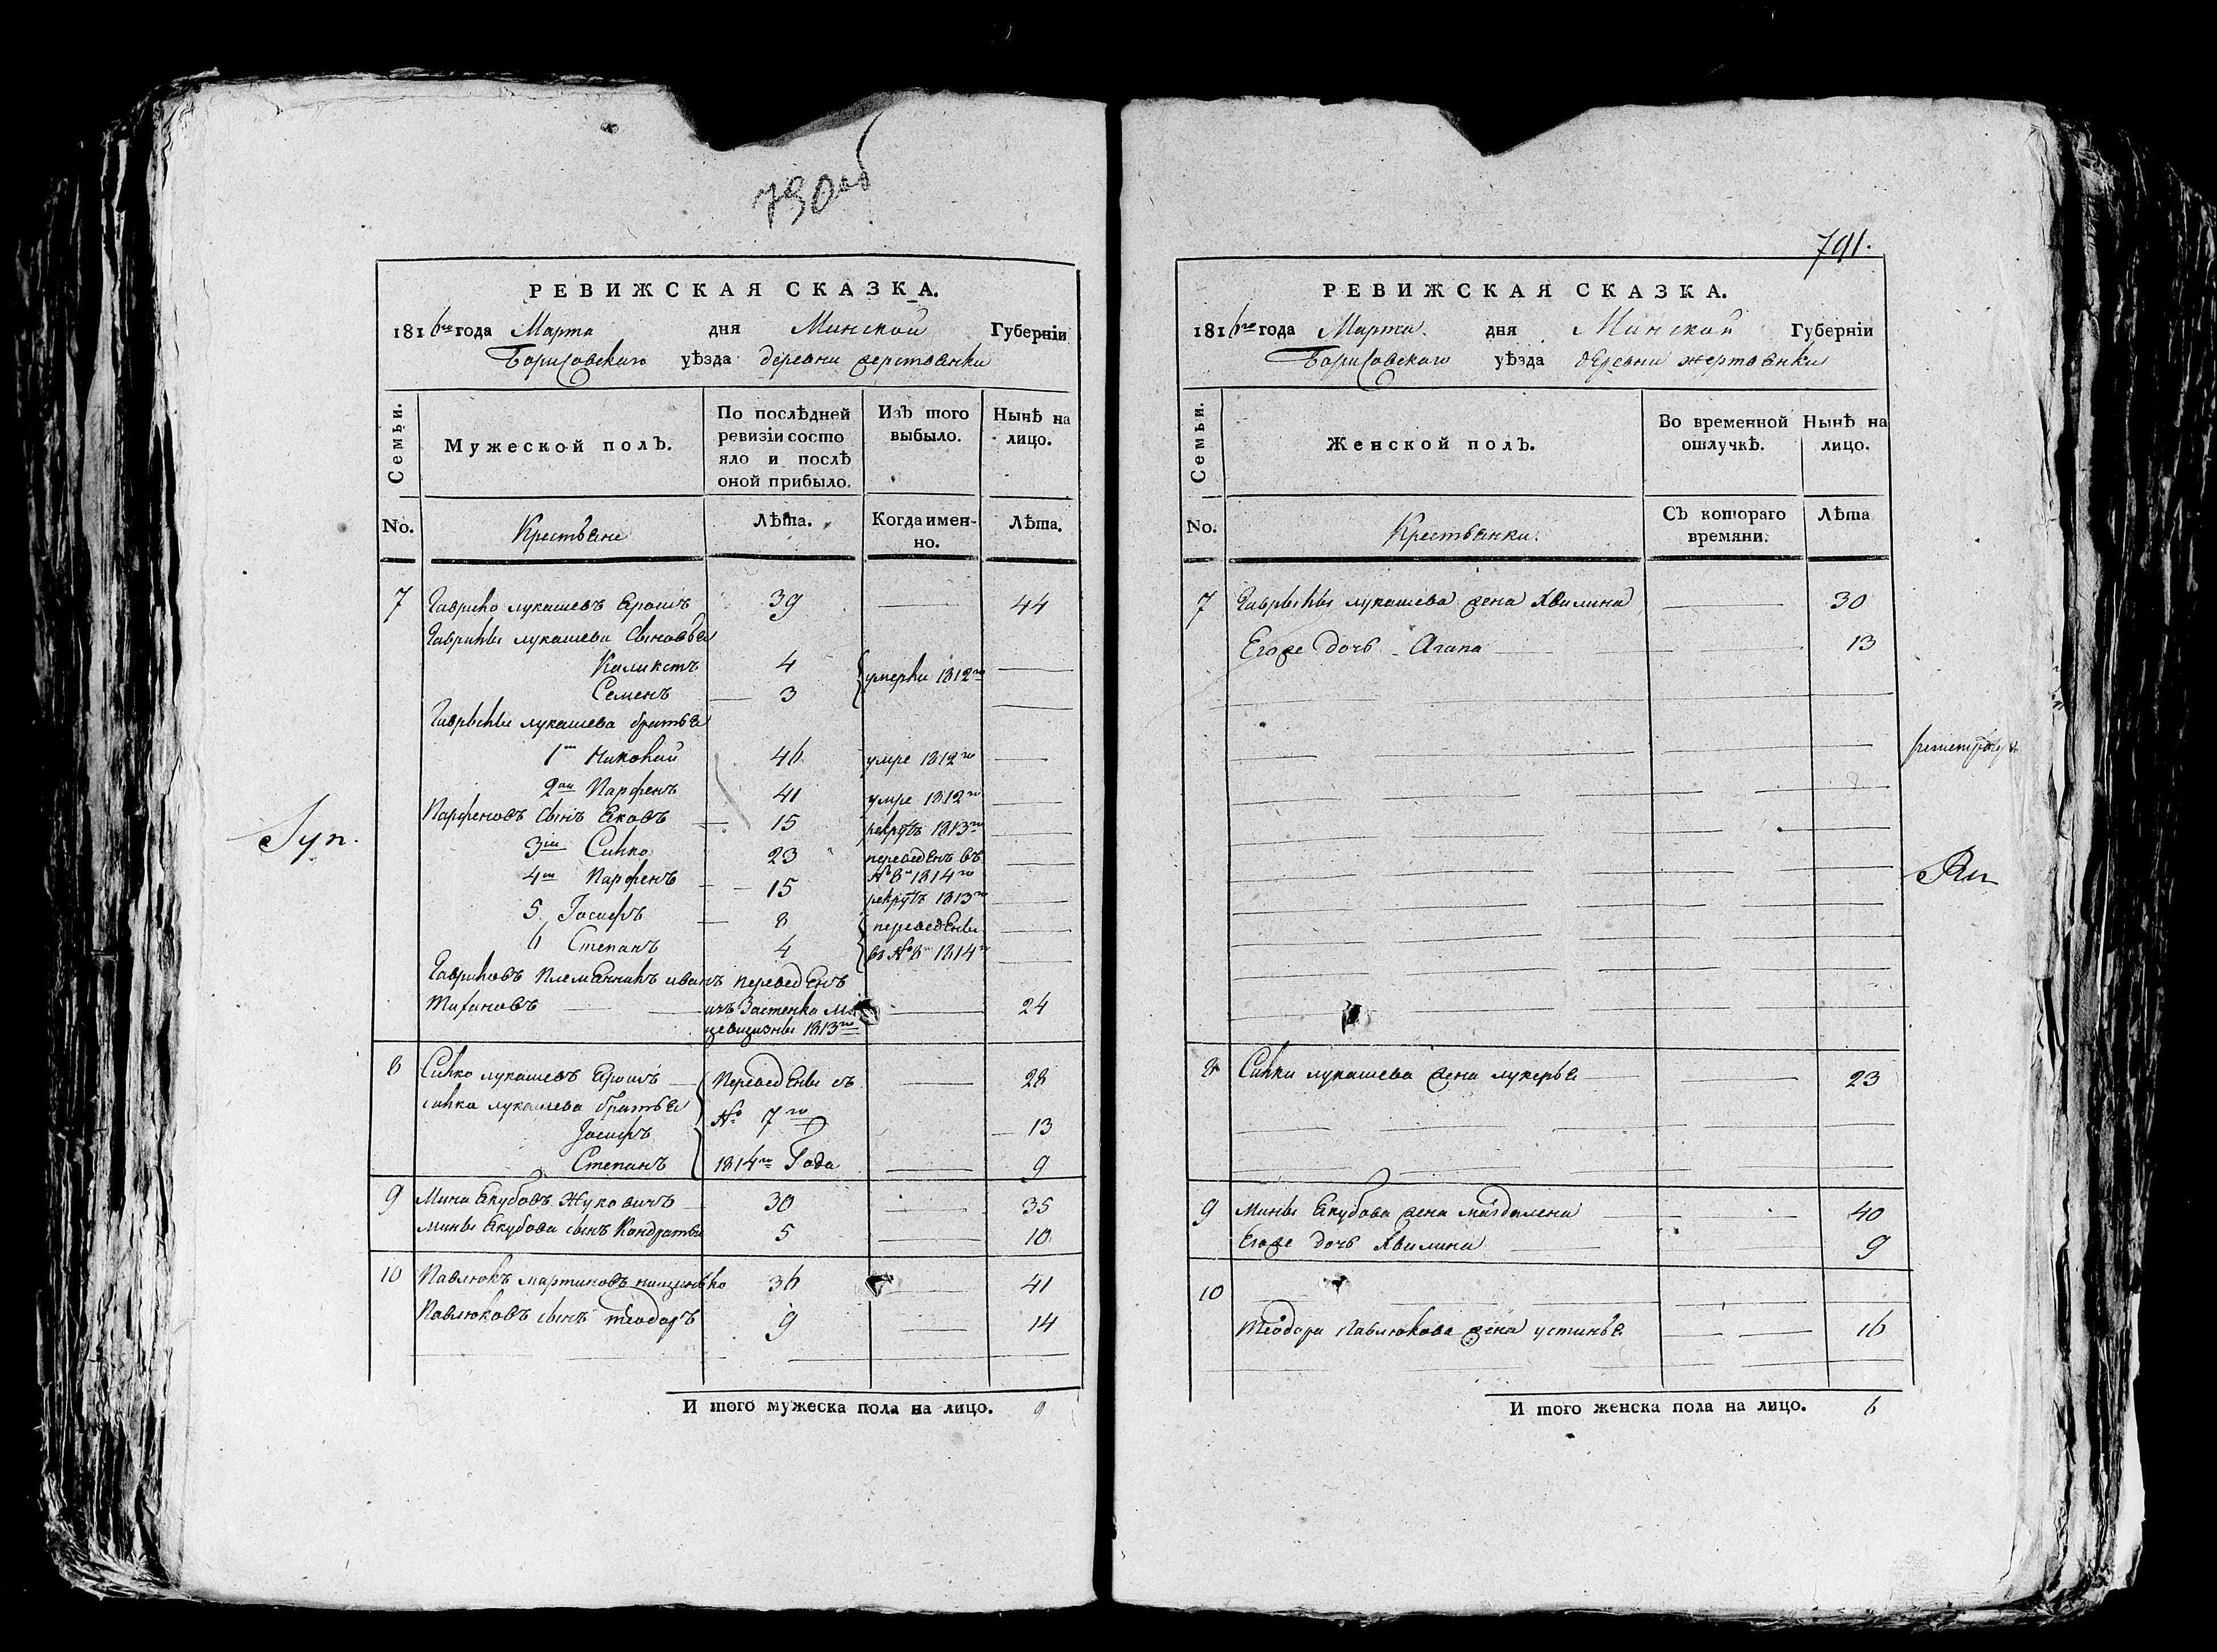 790об
РЕВИЖСКАЯ СКАЗКА.
1816го года Марта дня Минской Губерніи
Борисовскаго уѣзда деревни жерствянки
Семьи.
Мужеской полъ.
По послѣдней ревизіи состояло и послѣ оной прибыло.
Изъ того выбыло.
Нынѣ на лицо.
No.
Крестьяне
Лѣта.
Когда именно.
Лѣта.
7 Гаврило лукашевъ Ярошъ 39 — 44
Гаврилы лукашева сыновья
Каликстъ 4 умерли 1812го —
Семенъ 3 —
Гаврылы лукашева братья
1й Николай 46 умре 1812го —
2ой Парфенъ 41 умре 1812го —
Парфеновъ сынъ Яковъ 15 рекрутъ 1813го —
3ій Силко 23 переведенъ въ №8й 1814го —
4й Парфенъ 15 рекрутъ 1813го —
5 Іосифъ 8 переведены —
6 Степанъ 4 въ №8й 1814го —
Гавриловъ племянникъ иванъ переведенъ
изъ Застенка 24
1813го
8 Силко лукашевъ Ярошъ Переведены съ — 28
силка лукашева братья № 7го
Іосифъ — 13
Степанъ 1814го Года — 9
9 Мина Якубовъ Жуковичъ 30 — 35
Мины Якубова сынъ Кондратый 5 — 10
10 Павлюкъ мартиновъ 36 — 41
Павлюковъ сынъ теодоръ 9 — 14
И того мужеска пола на лицо. 9
Syn.
791.
РЕВИЖСКАЯ СКАЗКА.
1816го года Марта дня Минской Губерніи
Борисовскаго уѣзда деревни жертвянки
Семьи.
Женской полъ.
Во временной отлучкѣ.
Нынѣ на лицо.
No.
Крестьянки.
Съ котораго времяни.
Лѣта
7 Гаврылы лукашева жена Хвилина — 30
Егоже дочь Агапа — 13
8 Силки лукашева жена лукерья — 23
9 Мины Якубова жена магдалена — 40
Егоже дочь Хвилина — 9
10
Теодора Павлюкова жена устинья — 16
И того женска пола на лицо. 6